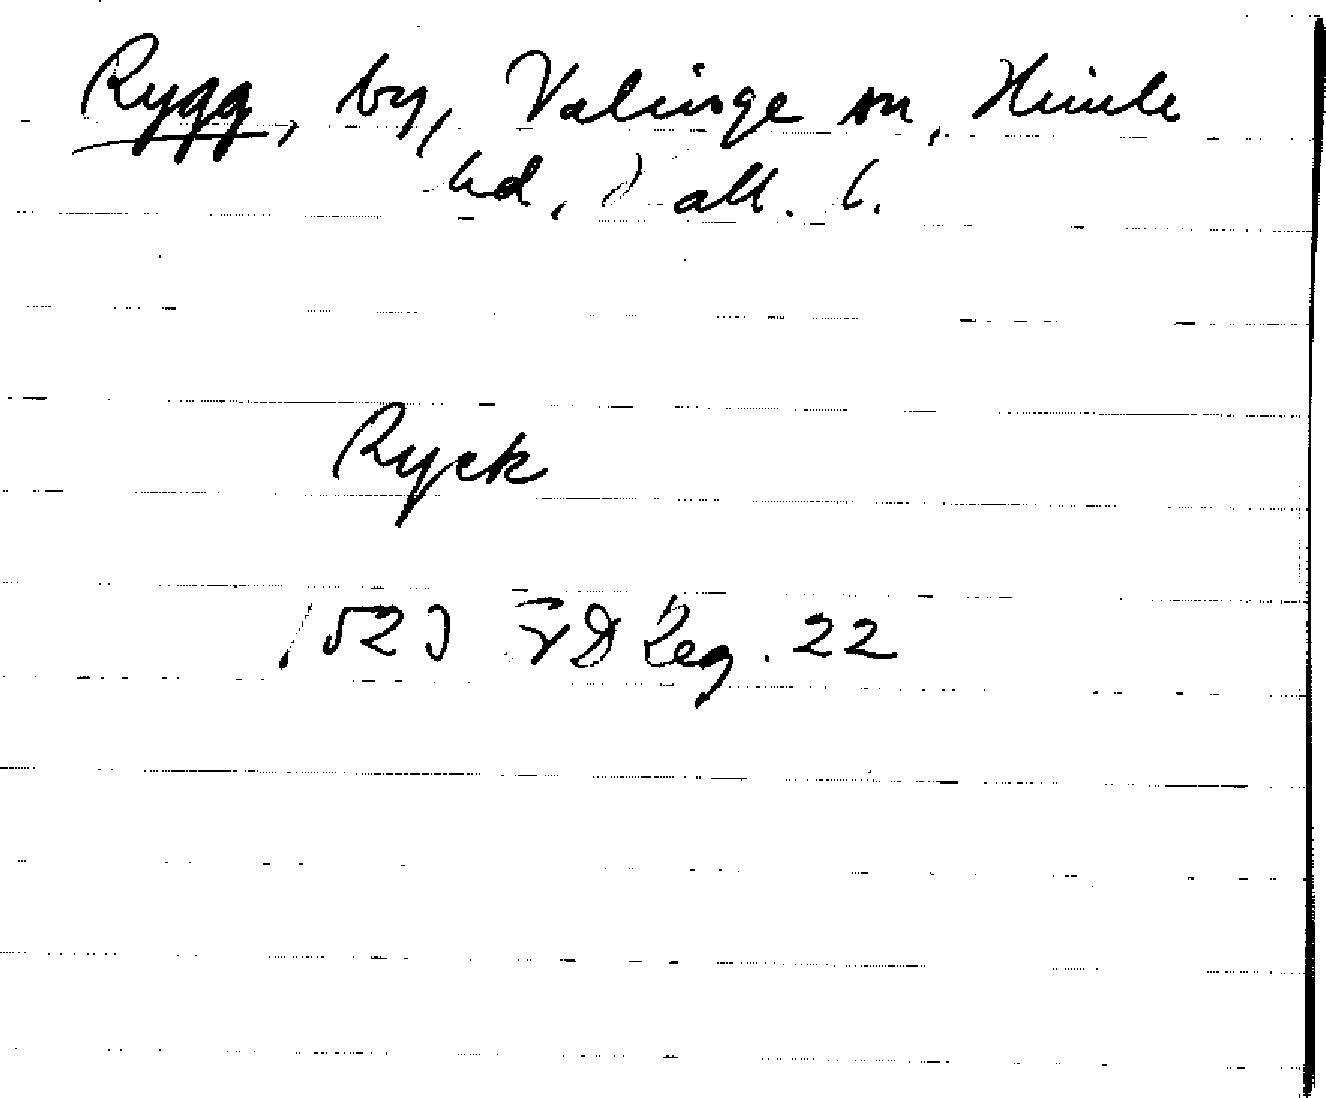 Rygg, by, Valinge sn, Himle
hd, Hall. l.
Ryck
1523 FD Reg. 22